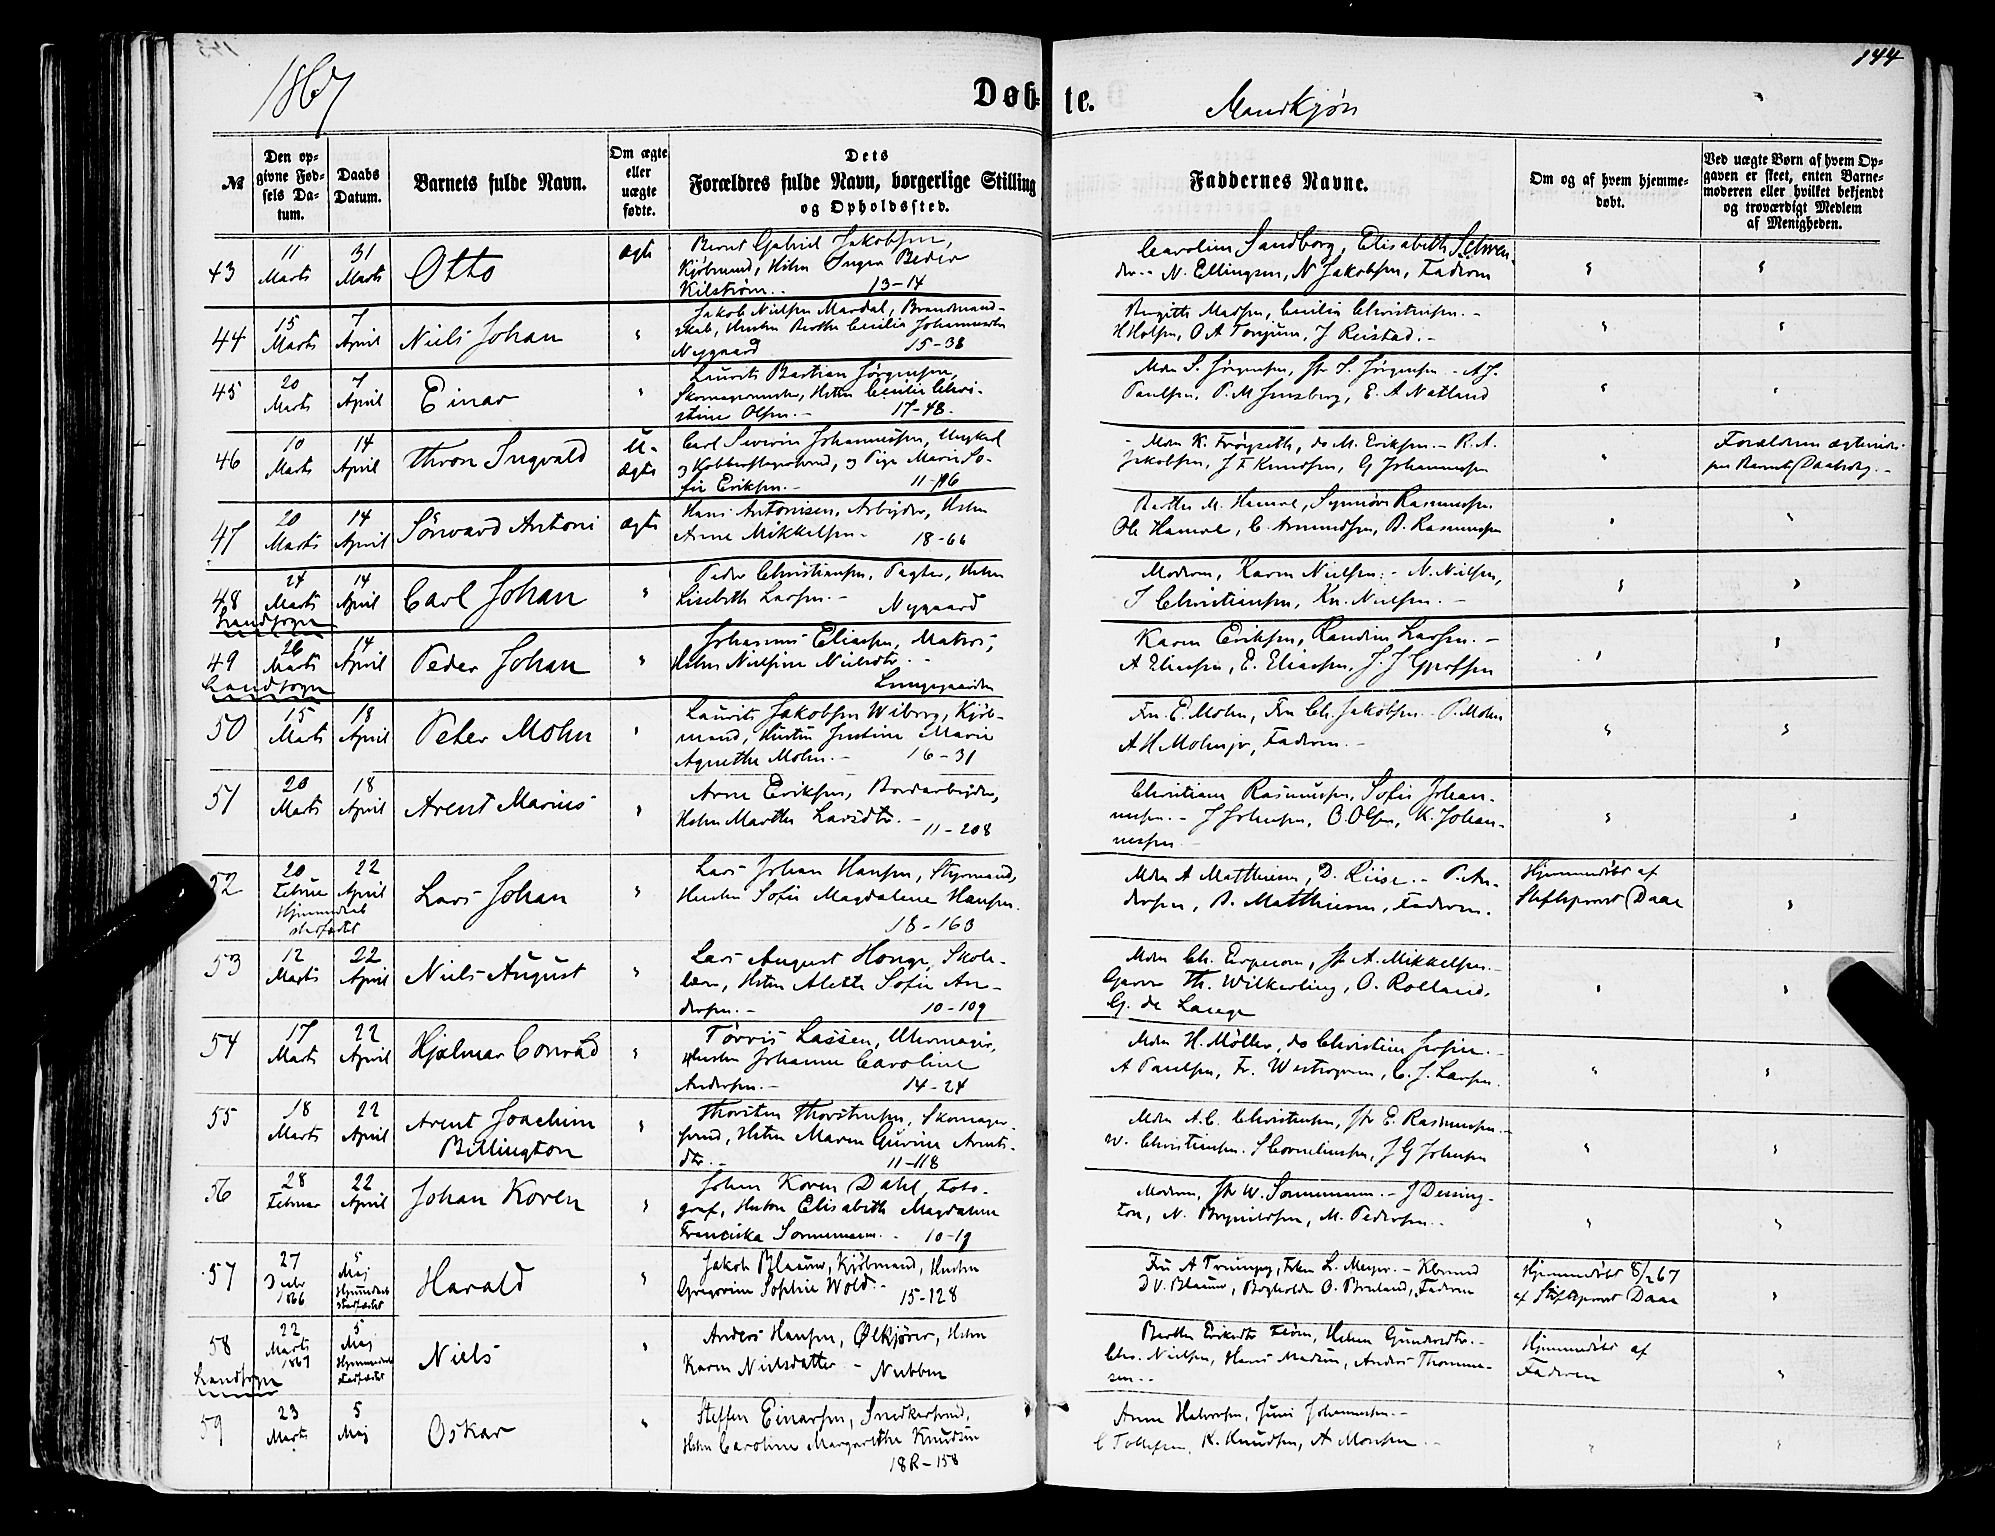 144
1867
Døb- te.
Mandkjøn
№
Den op-
givne Fød-
sels Da-
tum.
Daabs
Datum.
Barnets fulde Navn.
Om ægte
eller
uægte
fødte.
Dets
Forældres fulde Navn, borgerlige Stilling
og Opholdssted.
Faddernes Navne.
Om og af hvem hjemme-
døbt.
Ved uægte Børn af hvem Op-
gaven er skeet, enten Barne-
moderen eller hvilket bekjendt
og troværdigt Medlem
af Menigheden.
43
11
Marts
31
Marts
Otto
ægte
Bernt Gabriel Jakobsen,
Kjøbmand, Inger
13-14
Sandborg, Elisabeth
N. Ellingsen, N Jakobsen, Faderen
44
15
Marts
7
April
Niels Johan
Jakob Nielsen Mardal, Brandmand-
skab, Hustru Berthe Cecilia
Nygaard 15-38
Birgitte Madsen, Cecilia Christensen.-
45
20
Marts
7
April
Einar
Laurits Bastian Jørgensen,
Skomagermester, Hstru Cecilie Chri-
stine Olsen.- 17-48.
Mdm S. Jørgensen, Jfr S. Jørgensen.-
Paulsen, E. A Natland
46
10
Marts
14
April
Thron Ingvald
U-
ægte
Carl Severin Johannesen, Ungkarl
og Kobberslagersvend, og Pige Marie So-
fie Eriksen.-
Mdm K. Frøyseth, do M. Eriksen.- R. A.
Jakobsen, J F Knudsen, G Johannesen
Forældrene
47
20
Marts
14
April
Sørvard Antoni
ægte
Hans Antonisen, Arbeider, Hstru
Anne Mikkelsen- 18-66
Berthe M. Hamre, Synnøve Rasmussen
Ole Hamre, C. Amundsen, B. Rasmussen
48
Landsogn
24
Marts
14
April
Carl Johan
Peder Christiansen, Pagter, Hstru
Lisebeth Larsen.- Nygaard
Moderen, Karen Nielsen.- N. Nielsen,
J Christiansen, Kn. Nielsen.-
49
Landsogn
26
Marts
14
April
Peder Johan
Johannes Eliasen, Matros,
Hstru Nielsine Nielsdtr.-
Lungegaarden
Karen Eriksen, Randine Larsen.-
A Eliasen, E. Eliasen,
50
15
Marts
18
April
Peter Mohn
Laurits Jakobsen Wiborg, Kjøb-
mand, Hustru Justine Marie
Agnethe Mohn.- 16-31
Fru E. Mohn, Fru Ch. Jakobsen.- P. Mohn
A H Mohn jr, Faderen.-
51
20
Marts
18
April
Arent Marius
Arne Eriksen, Bordarbeider,
Hstru Marthe Larsdtr.-
11-208
Christiane Rasmussen, Sofie Johan-
nesen.- J Johnsen, O. Olsen, K. Johan-
nessen
52
20
Februar
Hjemmedaab
stadfæstet
22
April
Lars Johan
Lars Johan Hansen, Styrmand,
Hustru Sofie Magdalene Hansen.
18-160
Mdm A Matthiesen, D. Riise.- P. An-
dersen, B. Matthiesen, Faderen.
Hjemmedøbt af
Stiftsprovst Daae
53
12
Marts
22
April
Niels August
Lars August Hauge, Skole-
lærer, Hstru Alette Sofie An-
dersen.- 10-109
Mdm Ch. Jfr A. Mikkelsen.-
Garver Th. Wilkerling, O. Rolland,
G. de Lange
54
17
Marts
22
April
Hjalmar Conrad
Tørris Lassen, Uhrmager,
Hustru Johanne Caroline
Andersen.- 14-24
Mdm H. Möller, do Christine
A Paulsen, C. J. Larsen.
55
18
Marts
22
April
Arent Joachim
Billington
Thorsten Thorstensen, Skomager-
svend, Hstru Maren Gurine Arents-
dtr.- 11-118
Mdm A. C. Christensen, Jfr E. Rasmussen.-
W. Christensen. S Corneliussen, J G Johnsen
56
28
Februar
22
April
Johan Koren
Johan Koren Dahl, Foto-
graf, Hustru Elisabeth Magdalene
Franciska Sonnemann.- 10-19
Moderen, Jfr W. Sonnemann.- J Dessing-
ton, N. Brynildsen, M. Pedersen.-
57
27
Decbr
1866
5
Maj
Hjemmedaab
stadfæstet
Harald
Jakob Blaauw, Kjøbmand, Hustru
Gregorine Sophie Wold.-
15-128
Fru A Trumpy, Frkn L. Meyer.- Kbmnd
D V. Blaauw, Bogholder O. Bruland, Faderen
Hjemmedøbt 8/2 67
af Stiftsprovst Daae
58
Landsogn
22
Marts
1867
5
Maj
Hjemmedaab
stadfæstet
Niels
Anders Hansen, Ølkjører, Hstru
Karen Nielsdatter - Nubben
Berthe Eriksdtr Helene Gundersdtr.-
Chr. Nielsen, Hans Madsen, Anders Thomme-
sen.-
Hjemmedøbt af
Faderen
59
23
Marts
5
Maj
Oskar
Steffen Einarsen, Snedkersvend,
Hstru Caroline Margarethe Knudsen
18R-158
Anne Halvorsen, Johannesen.-
C Tollefsen, K. Knudsen, A Monsen.-